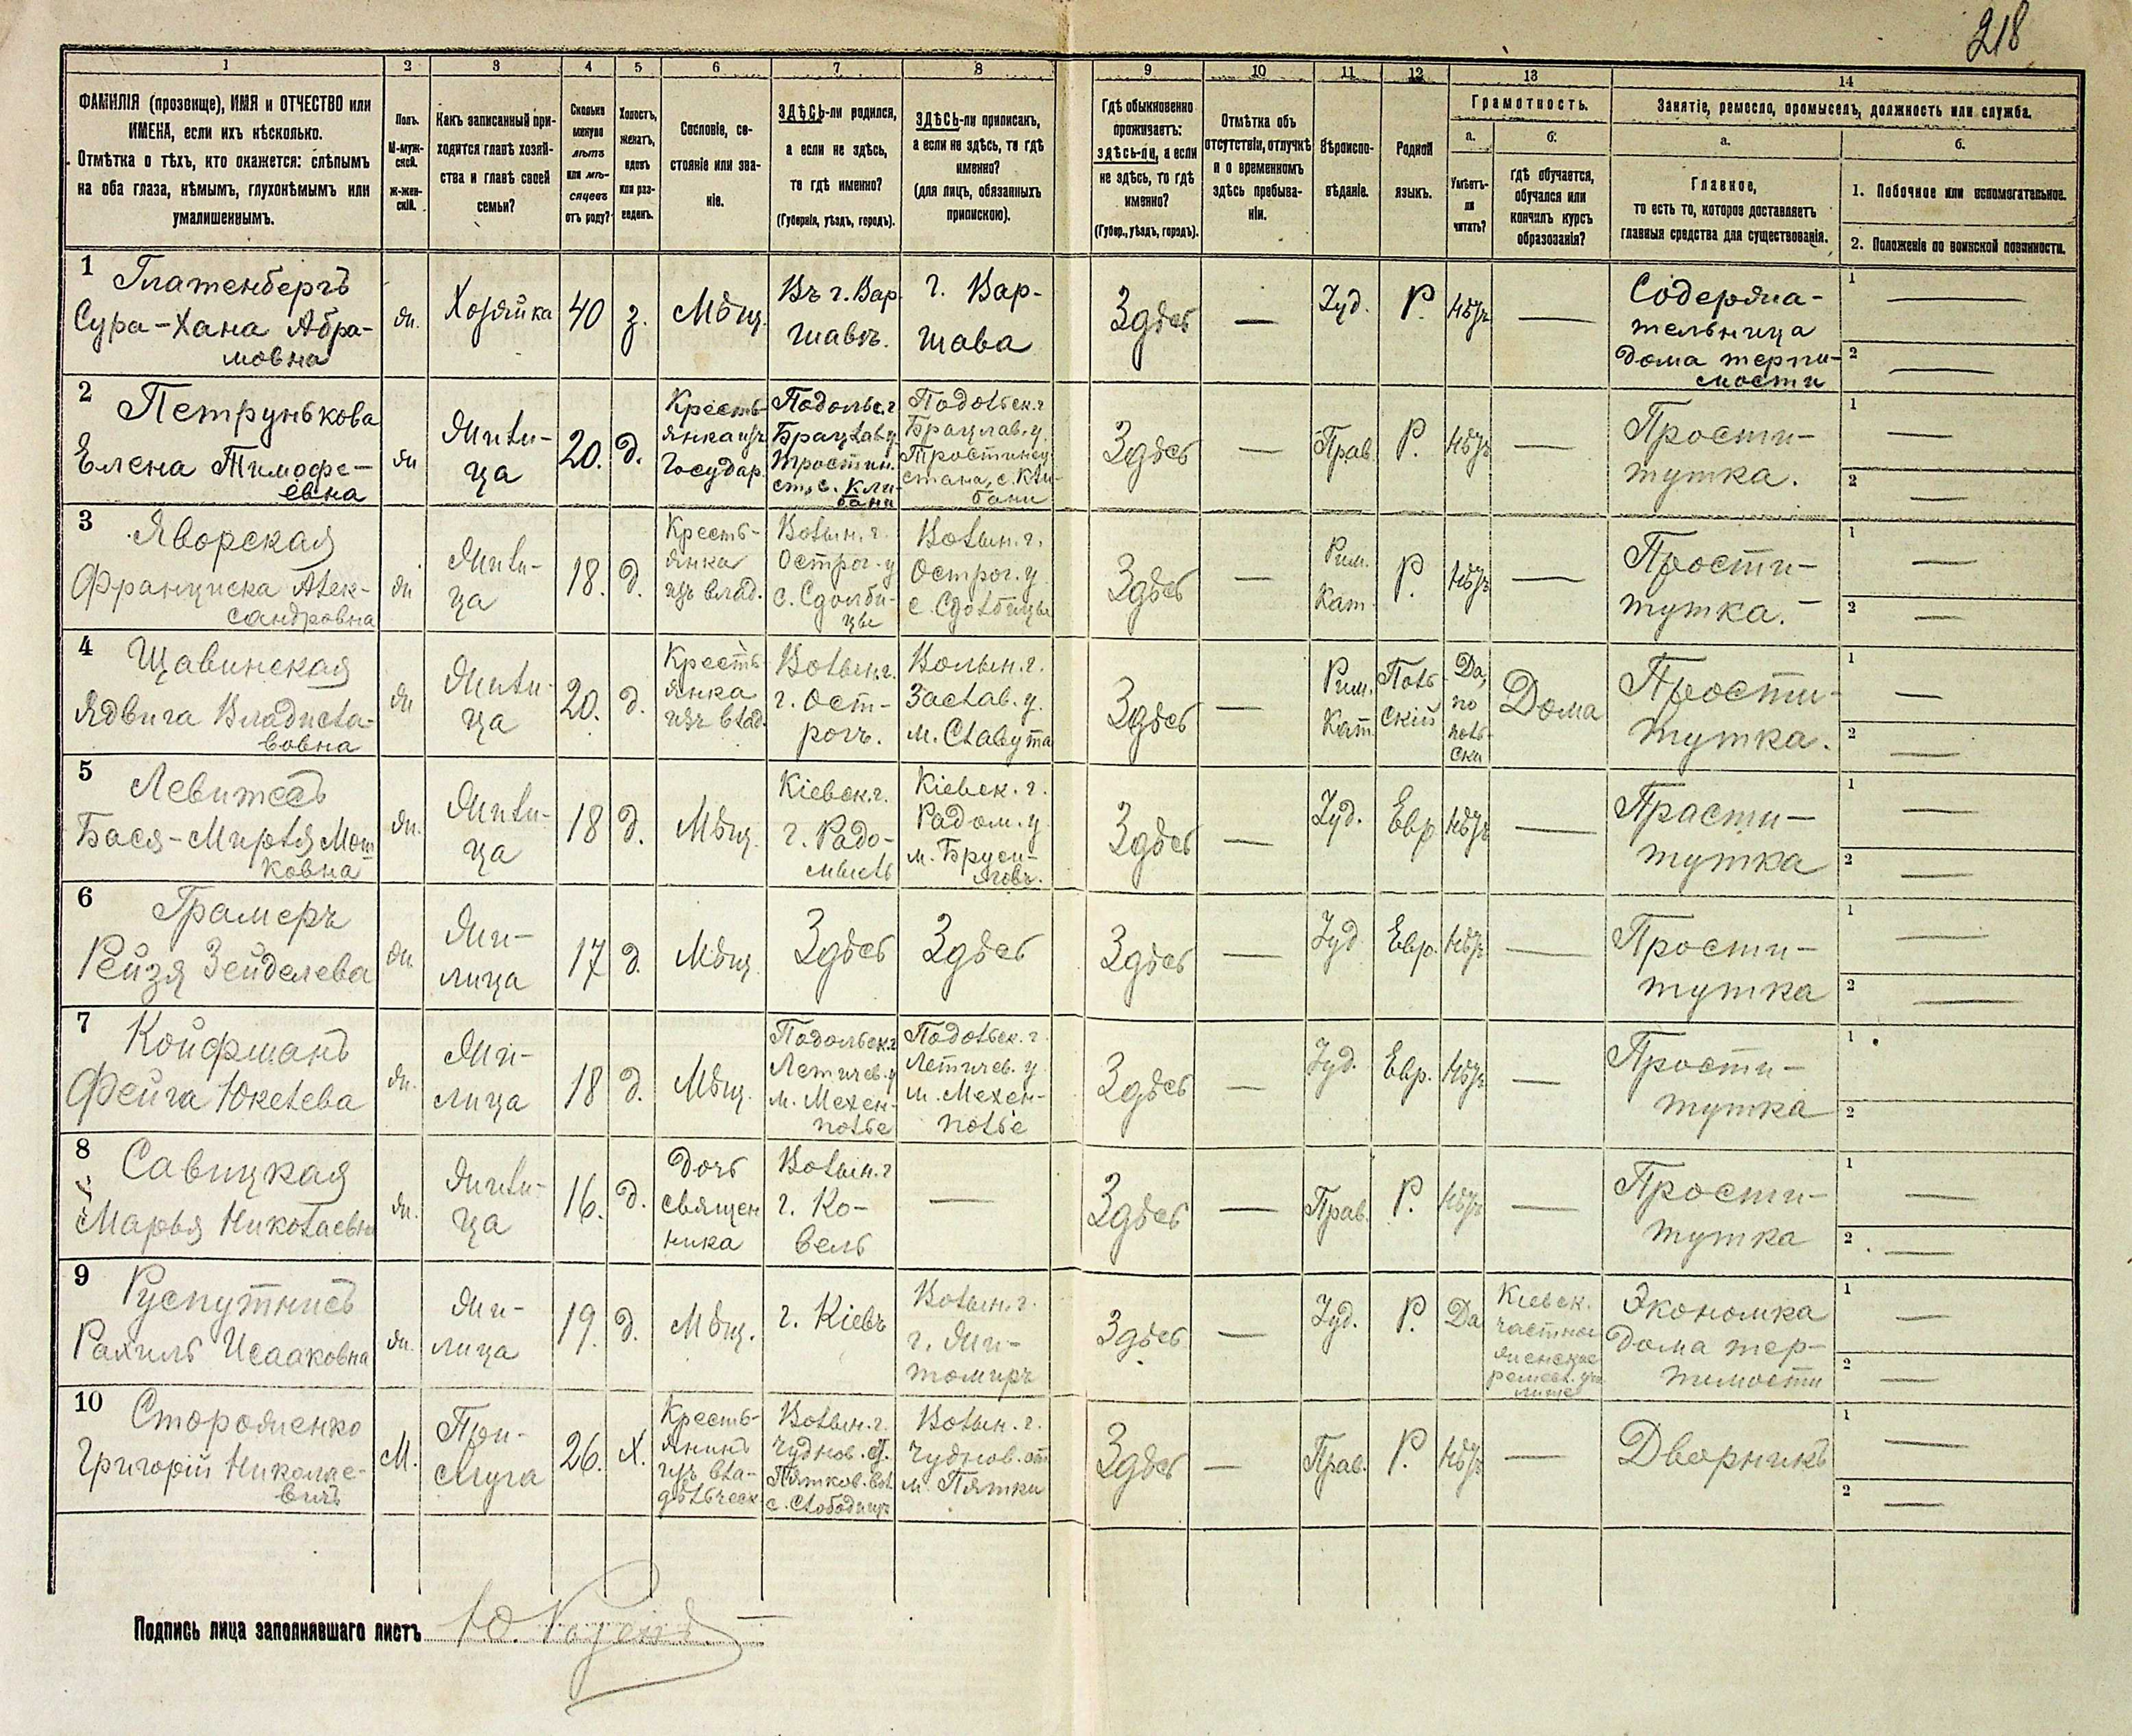 218
1 2 3 4 5 6 7 8 9 10 11 12 13 14
ФАМИЛІЯ (прозвище), ИМЯ и ОТЧЕСТВО или
ИМЕНА, если ихъ нѣсколько.
Отмѣтка о тѣхъ, кто окажется: слѣпымъ
на оба глаза, нѣмымъ, глухонѣмымъ или
умалишеннымъ.
Полъ.
М-муж-
ской.
Ж-жен-
скій.
Какъ записанный при-
ходится главѣ хозяй-
ства и главѣ своей
семьи?
Сколько
минуло
лѣтъ
или мѣ-
сяцевъ
отъ роду?
Холостъ,
женатъ,
вдовъ
или раз-
веденъ.
Сословіе, со-
стояніе или зва-
ніе.
ЗДѢСЬ-ли родился,
а если не здѣсь,
то гдѣ именно?
(Губернія, уѣздъ, городъ).
ЗДѢСЬ-ли приписанъ,
а если не здѣсь, то гдѣ
именно?
(для лицъ, обязанныхъ
припискою).
Гдѣ обыкновенно
проживаетъ:
здѣсь-ли, а если
не здѣсь, то гдѣ
именно?
(Губер., уѣздъ, городъ).
Отмѣтка объ
отсутствіи, отлучкѣ
и о временномъ
здѣсь пребыва-
ніи.
Вѣроиспо-
вѣданіе.
Родной
языкъ.
Грамотность.
а.
Умѣетъ-
ли
читать?
б.
гдѣ обучается,
обучался или
кончилъ курсъ
образованія?
Занятіе, ремесло, промыселъ, должность или служба.
а.
Главное,
то есть то, которое доставляетъ
главныя средства для существованія.
б.
1. Побочное или вспомогательное.
2. Положеніе по воинской повинности.
1
Глатенбергъ
Сура-Хана Абра-
мовна
Ж.
Хозяйка
40
з.
Мѣщ.
Въ г. Вар-
шавѣ.
г. Вар-
шава
Здѣсь
—
Іуд.
Р.
нѣтъ
—
Содержа-
тельница
дома терпи-
мости
1 —
2 —
2
Петрунькова
Елена Тимофе-
евна
Ж
Жили-
ца
20.
д.
Кресть-
янка изъ
Государ.
Подольс. г
Брацлав. у
Тростин.
ст., с. Кли-
бани
Подольск. г
Брацлав. у.
Тростинец.
стана, с. Кли-
бани
Здѣсь
—
Прав.
Р.
нѣтъ
—
Прости-
тутка.
1 —
2 —
3
Яворская
Франциска Алек-
сандровна
Ж
Жили-
ца
18.
д.
Кресть-
янка
изъ влад.
Волын. г.
Острог. у
с. Сдолби-
цы
Волын. г.
Острог. у
с. Сдолбицы
Здѣсь
—
Рим.
Кат.
Р.
нѣтъ
—
Прости-
тутка.
1 —
2 —
4
Щавинская
Ядвига Владисла-
вовна
Ж
Жили-
ца
20.
д.
Кресть-
янка
изъ влад.
Волын. г.
г. Ост-
рогъ.
Волын. г.
Заслав. у.
м. Славута
Здѣсь
—
Рим.
Кат
Поль-
скій
Да,
по
поль-
ски
Дома
Прости-
тутка.
1 —
2 —
5
Левитесъ
Бася-Мирля Мот-
ковна
Ж.
Жили-
ца
18
д.
Мѣщ.
Кіевск. г.
г. Радо-
мысль
Кіевск. г.
Радом. у
м. Бруси-
ловъ.
Здѣсь
—
Іуд.
Евр
нѣтъ
—
Прости-
тутка
1 —
2 —
6
Грамеръ
Рейзя Зейделева
Ж.
Жи-
лица
17
д.
Мѣщ.
Здѣсь
Здѣсь
Здѣсь
—
Іуд
Евр.
нѣтъ
—
Прости-
тутка
1 —
2 —
7
Койфманъ
Фейга Юкелева
Ж.
Жи-
лица
18
д.
Мѣщ.
Подольск. г
Летичев. у
м. Мехен-
полье
Подольск. г.
Летичев. у
м. Мехен-
полье
Здѣсь
—
Іуд.
Евр.
нѣтъ
—
Прости-
тутка
1
2
8
Савицкая
Марья Николаевна
Ж.
Жили-
ца
16.
д.
дочь
священ
ника
Волын. г
г. Ко-
вель
—
Здѣсь
—
Прав.
Р.
нѣтъ
—
Прости-
тутка
1 —
2 —
9
Рахиль Исааковна
Ж.
Жи-
лица
19.
д.
Мѣщ.
г. Кіевъ
Волын. г.
г. Жи-
томиръ
Здѣсь
—
Іуд.
Р.
Да
Кіевск.
частное
женское
ремесл. учи
лище
Экономка
дома тер-
пимости
1 —
2 —
10
Стороженко
Григорій Николае-
вичъ
М.
При-
слуга
26.
Х.
Кресть-
янинъ
изъ вла-
дѣльческ
Волын. г.
Чуднов. ст.
Пятков. вол
с. Слободищъ
Волын. г.
Чуднов. ст
м. Пятки
Здѣсь
—
Прав.
Р.
нѣтъ
—
Дворникъ
1 —
2 —
Подпись лица заполнявшаго листъ